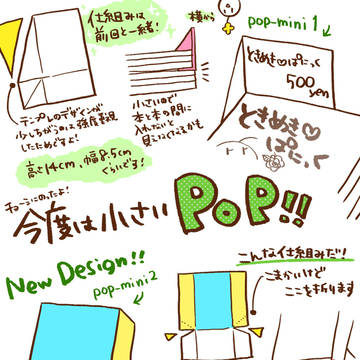 仕組みは
前回と一緒!
横から
pop-mini 1
ときめき♡ぱにっく
500
yen
テンプレのデザインが
少しちがうのは強度重視
したためですよ!
小さいので
本と本の間に
入れないと
見えなくなるかも
ときめき♡
ぱにっく
高さ14cm、幅8.5cm
くらいどす!
今度は小さいPOP!!
New Design!!
pop-mini2
こんな仕組みだ!
こまかいけど
ここを折ります